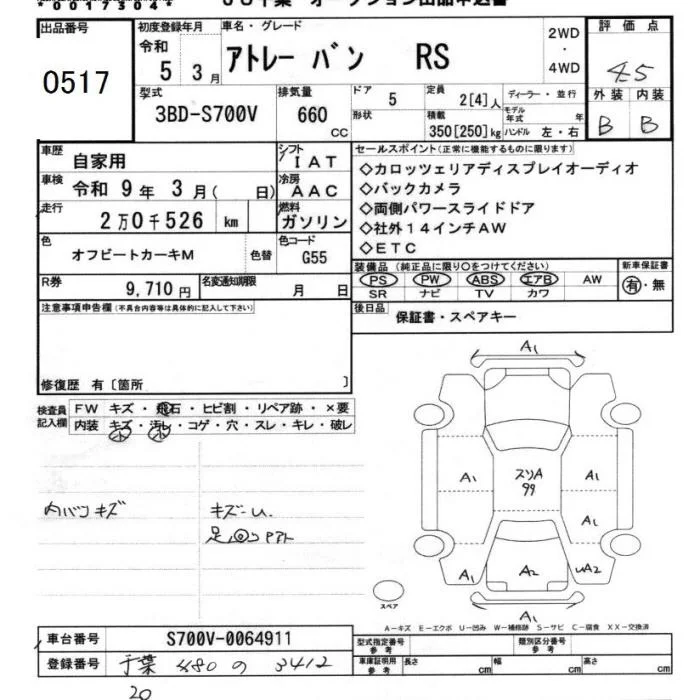 00173504
出品番号
0517
初度登録年月
令和
5 3 月
車名・グレード
アトレー バン RS
2WD
・
4WD
評価点
4.5
外装 内装
B B
型式
3BD-S700V
排気量
660
CC
ドア
5
形状
定員
2[4]人
積載
350[250]kg
ディーラー・並行
モデル年式 年
ハンドル 左・右
車歴
自家用
シフト
IAT
車検
令和 9年 3月( 日)
冷房
AAC
走行
2万0千526 km
燃料
ガソリン
色
オフビートカーキM
色替
色コード
G55
R券
9,710円
名変通知期限
月 日
セールスポイント(正常に機能するものに限ります)
◇カロッツェリアディスプレイオーディオ
◇バックカメラ
◇両側パワースライドドア
◇社外14インチAW
◇ETC
装備品 (純正品に限り〇をつけてください)
PS PW ABS エアB AW
SR ナビ TV カワ
新車保証書
有・無
後日品
保証書・スペアキー
注意事項申告欄(不具合内容等は具体的に記入して下さい)
修復歴 有〔箇所 〕
検査員
記入欄
FW キズ・飛石・ヒビ割・リペア跡・×要
内装 キズ・汚レ・コゲ・穴・スレ・キレ・破レ
小 小
内バンキズ
キズ-U.
A1
A1
スリA
99
A1
A1
A1
A2
UA2
A1
スペア
A-キズ E-エクボ U-凹み W-補修跡 S-サビ C-腐食 XX-交換済
車台番号
S700V-0064911
登録番号
千葉 480 の 3412
20
型式指定番号
参考
類別区分番号
参考
車庫証明用
参考
長さ cm
幅 cm
高さ cm